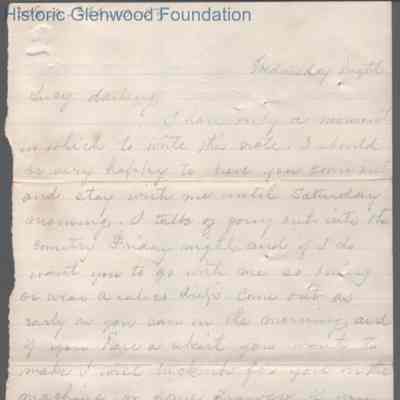 Historic Glenwood Foundation
Wednesday night
Lucy darling,
I have only a moment
in which to write this note. I should
be very happy to have you come out
and stay with me until Saturday
morning. I talk of going out into the
country Friday night and if I do
want you to go with me so bring
or wear a calico dress. Come out as
early as you can in the morning, and
if you have a skirt you want to
make I will for you on the
machine or